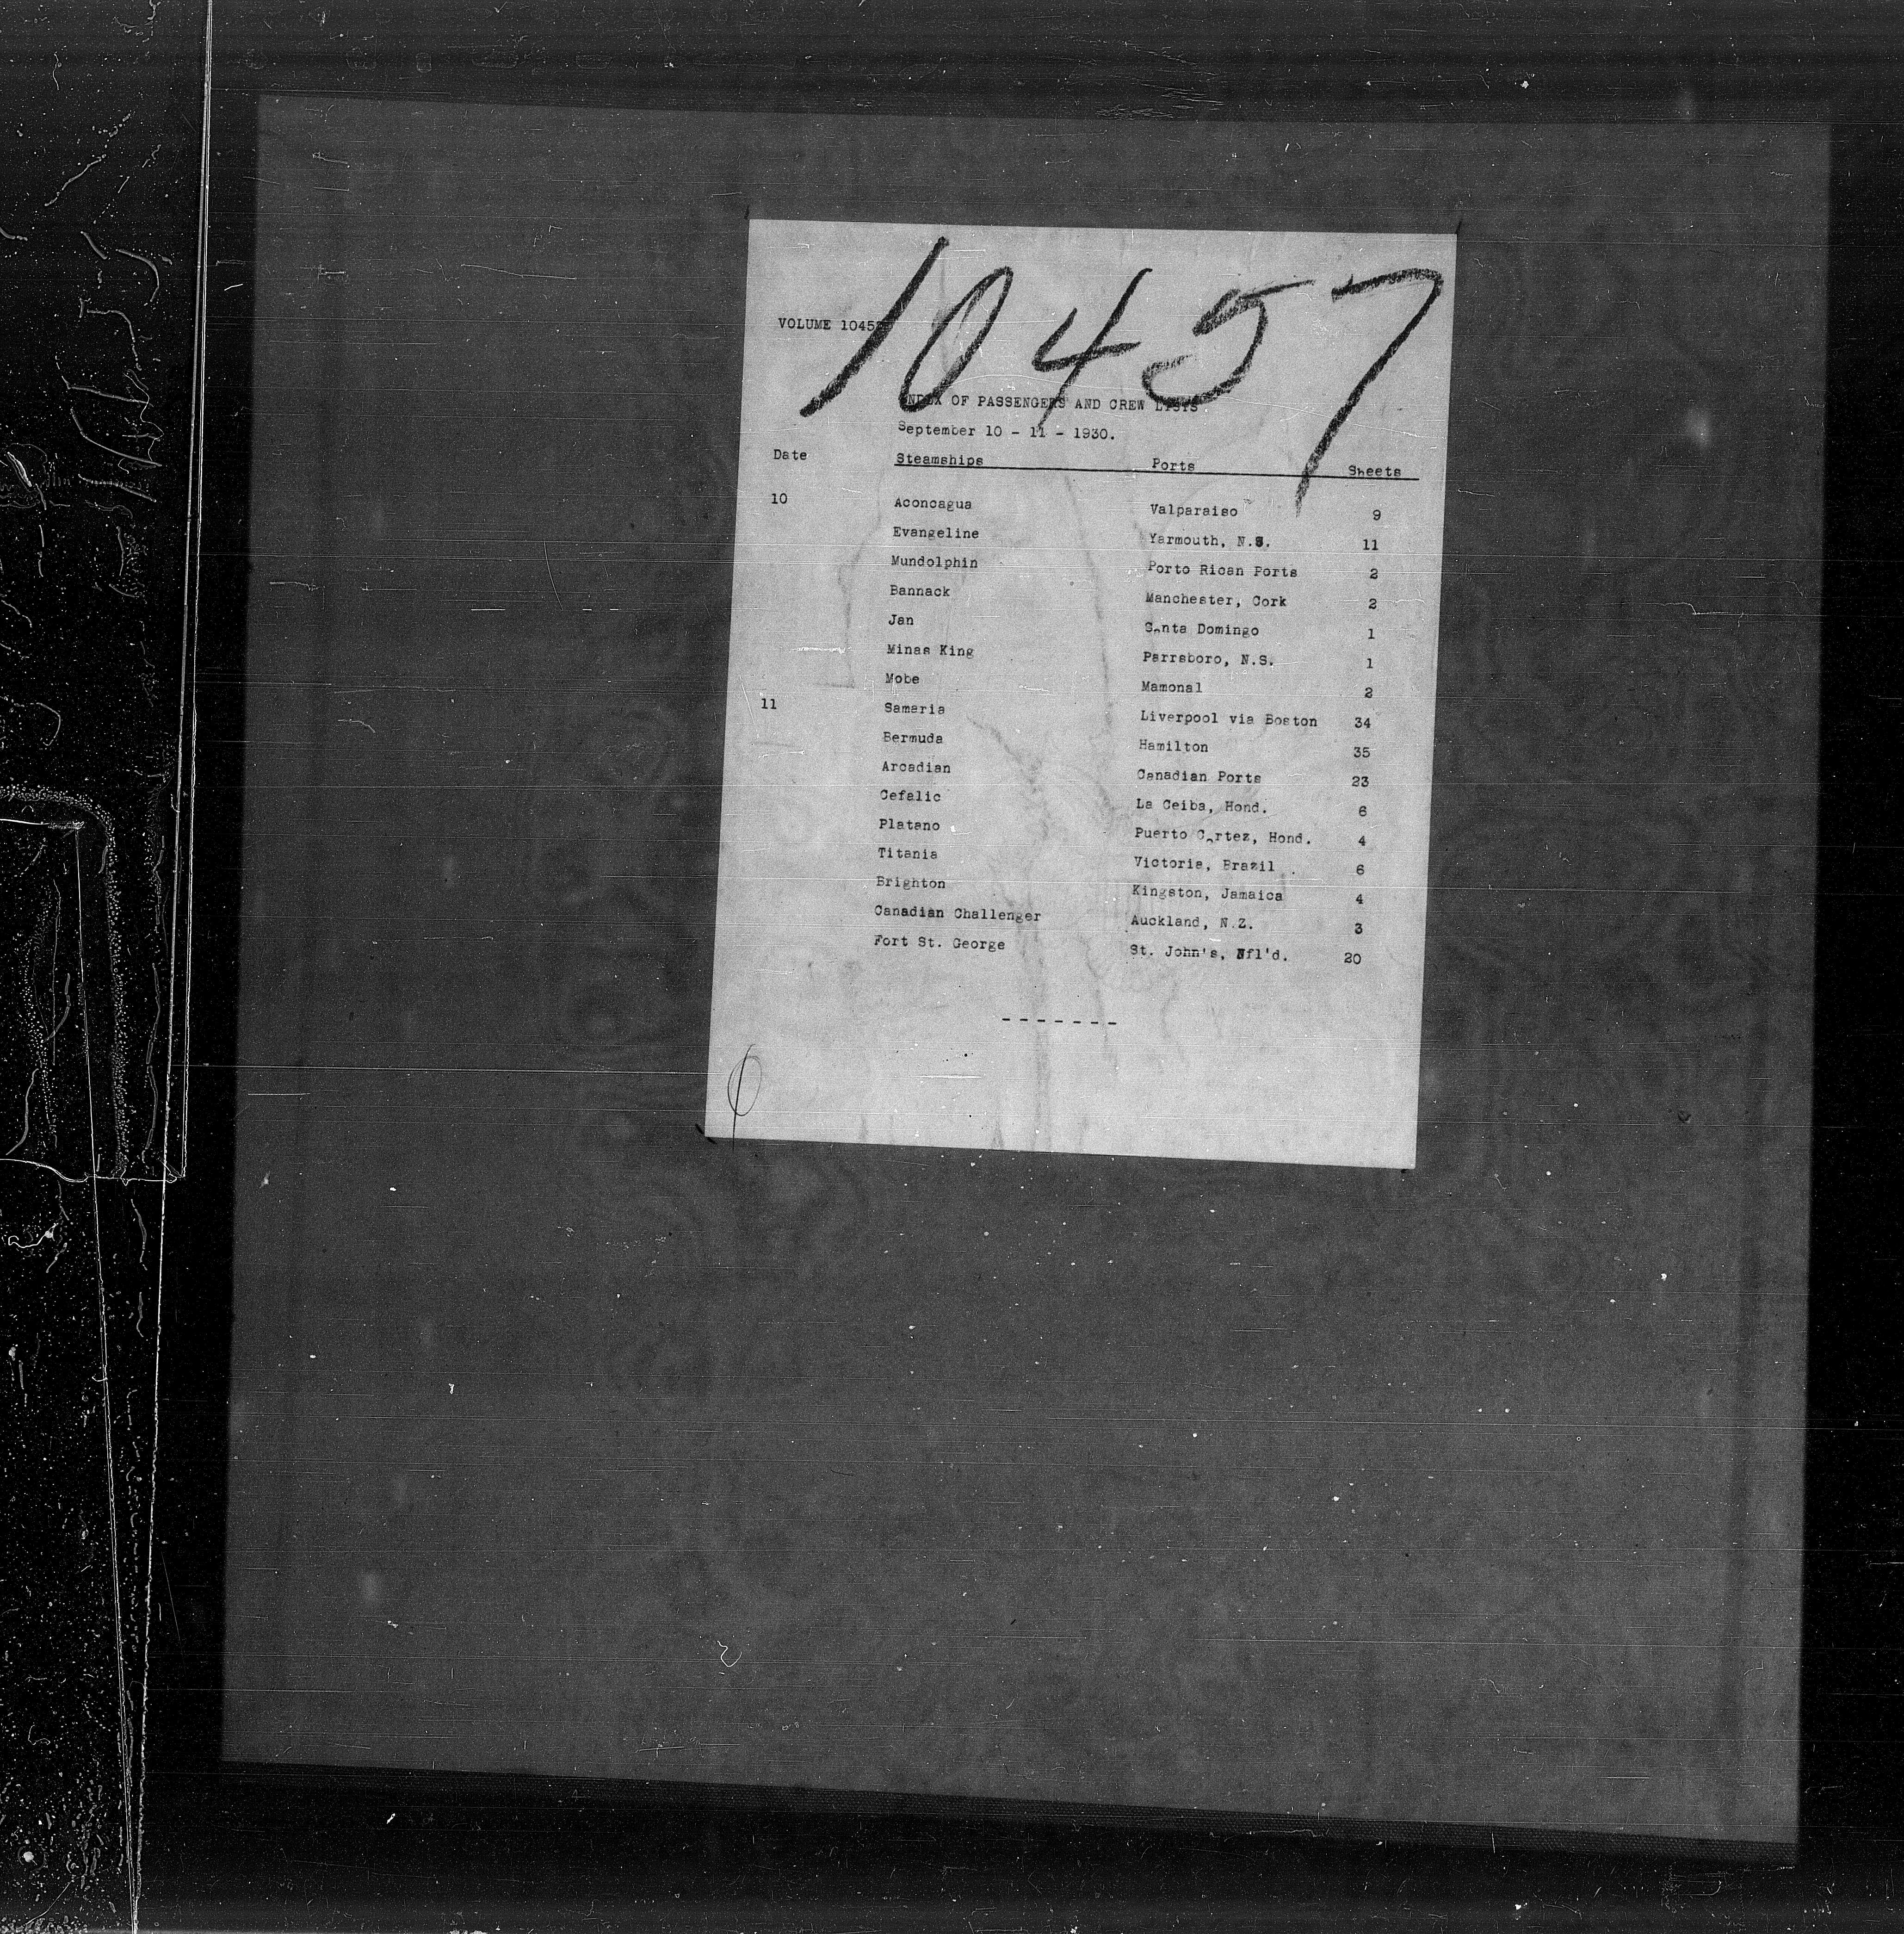 10457
VOLUME 10457
INDEX OF PASSENGERS AND CREW LISTS
September 10 - 11 - 1930.
Date Steamships Ports Sheets
10 Aconcagua Valparaiso 9
Evangeline Yarmouth, N.S. 11
Mundolphin Porto Rican Ports 2
Bannack Manchester, Cork 2
Jan Santa Domingo 1
Minas King Parrsboro, N.S. 1
Mobe Mamonal 2
11 Samaria Liverpool via Boston 34
Bermuda Hamilton 35
Arcadian Canadian Ports 23
Cefalic La Ceiba, Hond. 6
Platano Puerto Cortez, Hond. 4
Titania Victoria, Brazil 6
Brighton Kingston, Jamaica 4
Canadian Challenger Auckland, N.Z. 3
Fort St. George St. John's, Nfl'd. 20
- - - - - - -